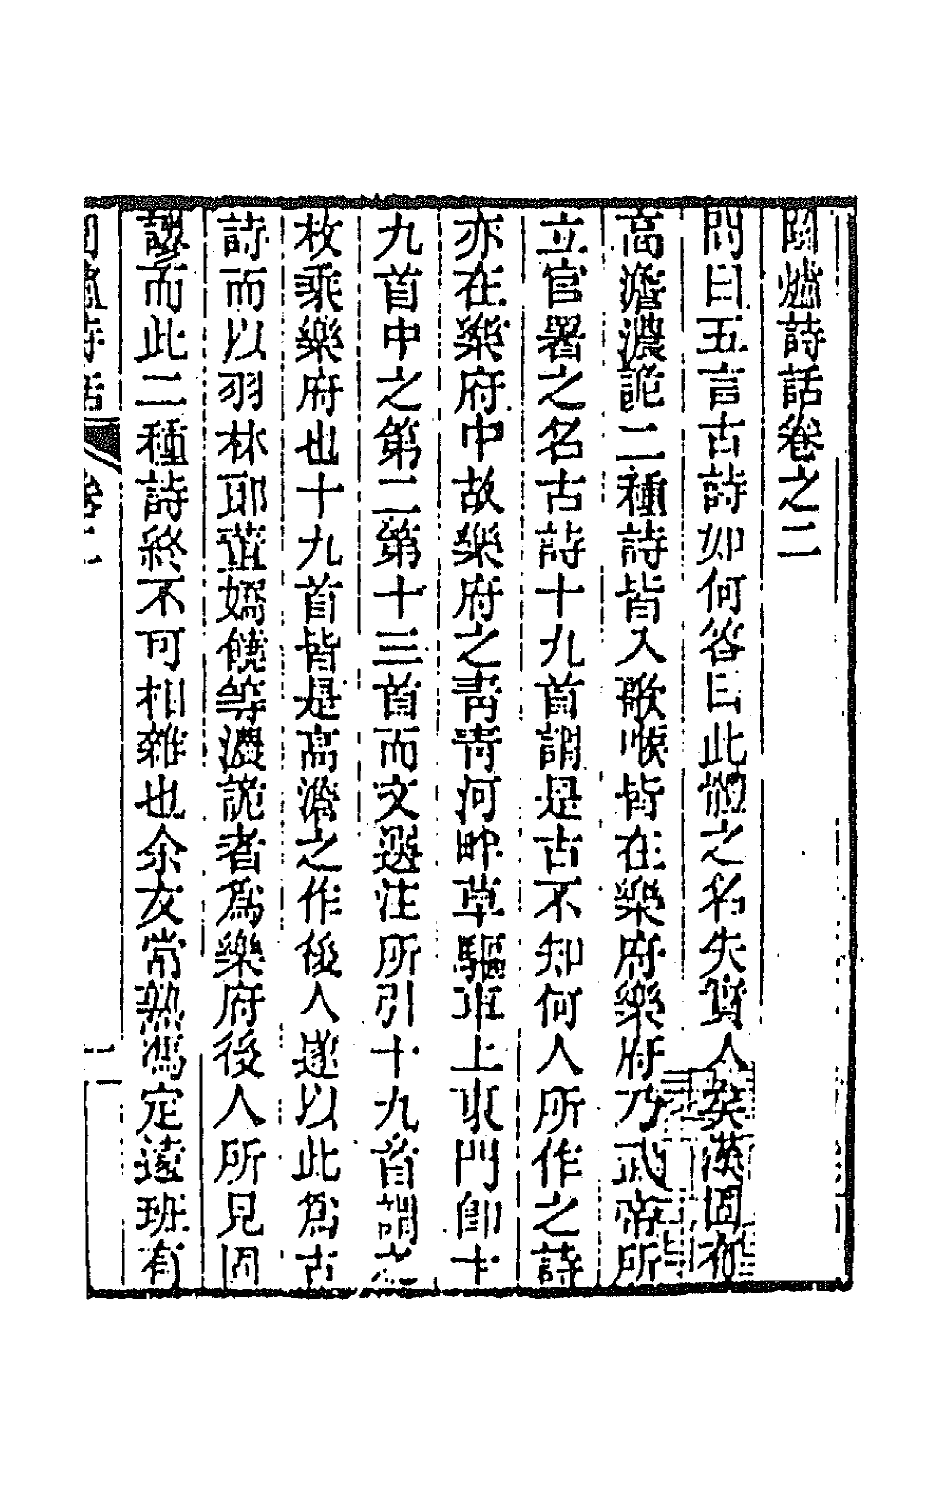 圍爐詩話卷之二
問曰五言古詩如何答曰此體之名失實久矣漢固有
高澹濃詭二種詩皆入歌喉皆在樂府樂府乃武帝所
立官署之名古詩十九首謂是古不知何人所作之詩
亦在樂府中故樂府之靑靑河畔草驅車上東門卽十
九首中之第二第十三首而文選注所引十九首謂之
枚乘樂府也十九首皆是高澹之作後人遂以此爲古
詩而以羽林郎董嬌饒等濃詭者爲樂府後人所見固
謬而此二種詩終不可相雜也余友常熟馮定遠班有